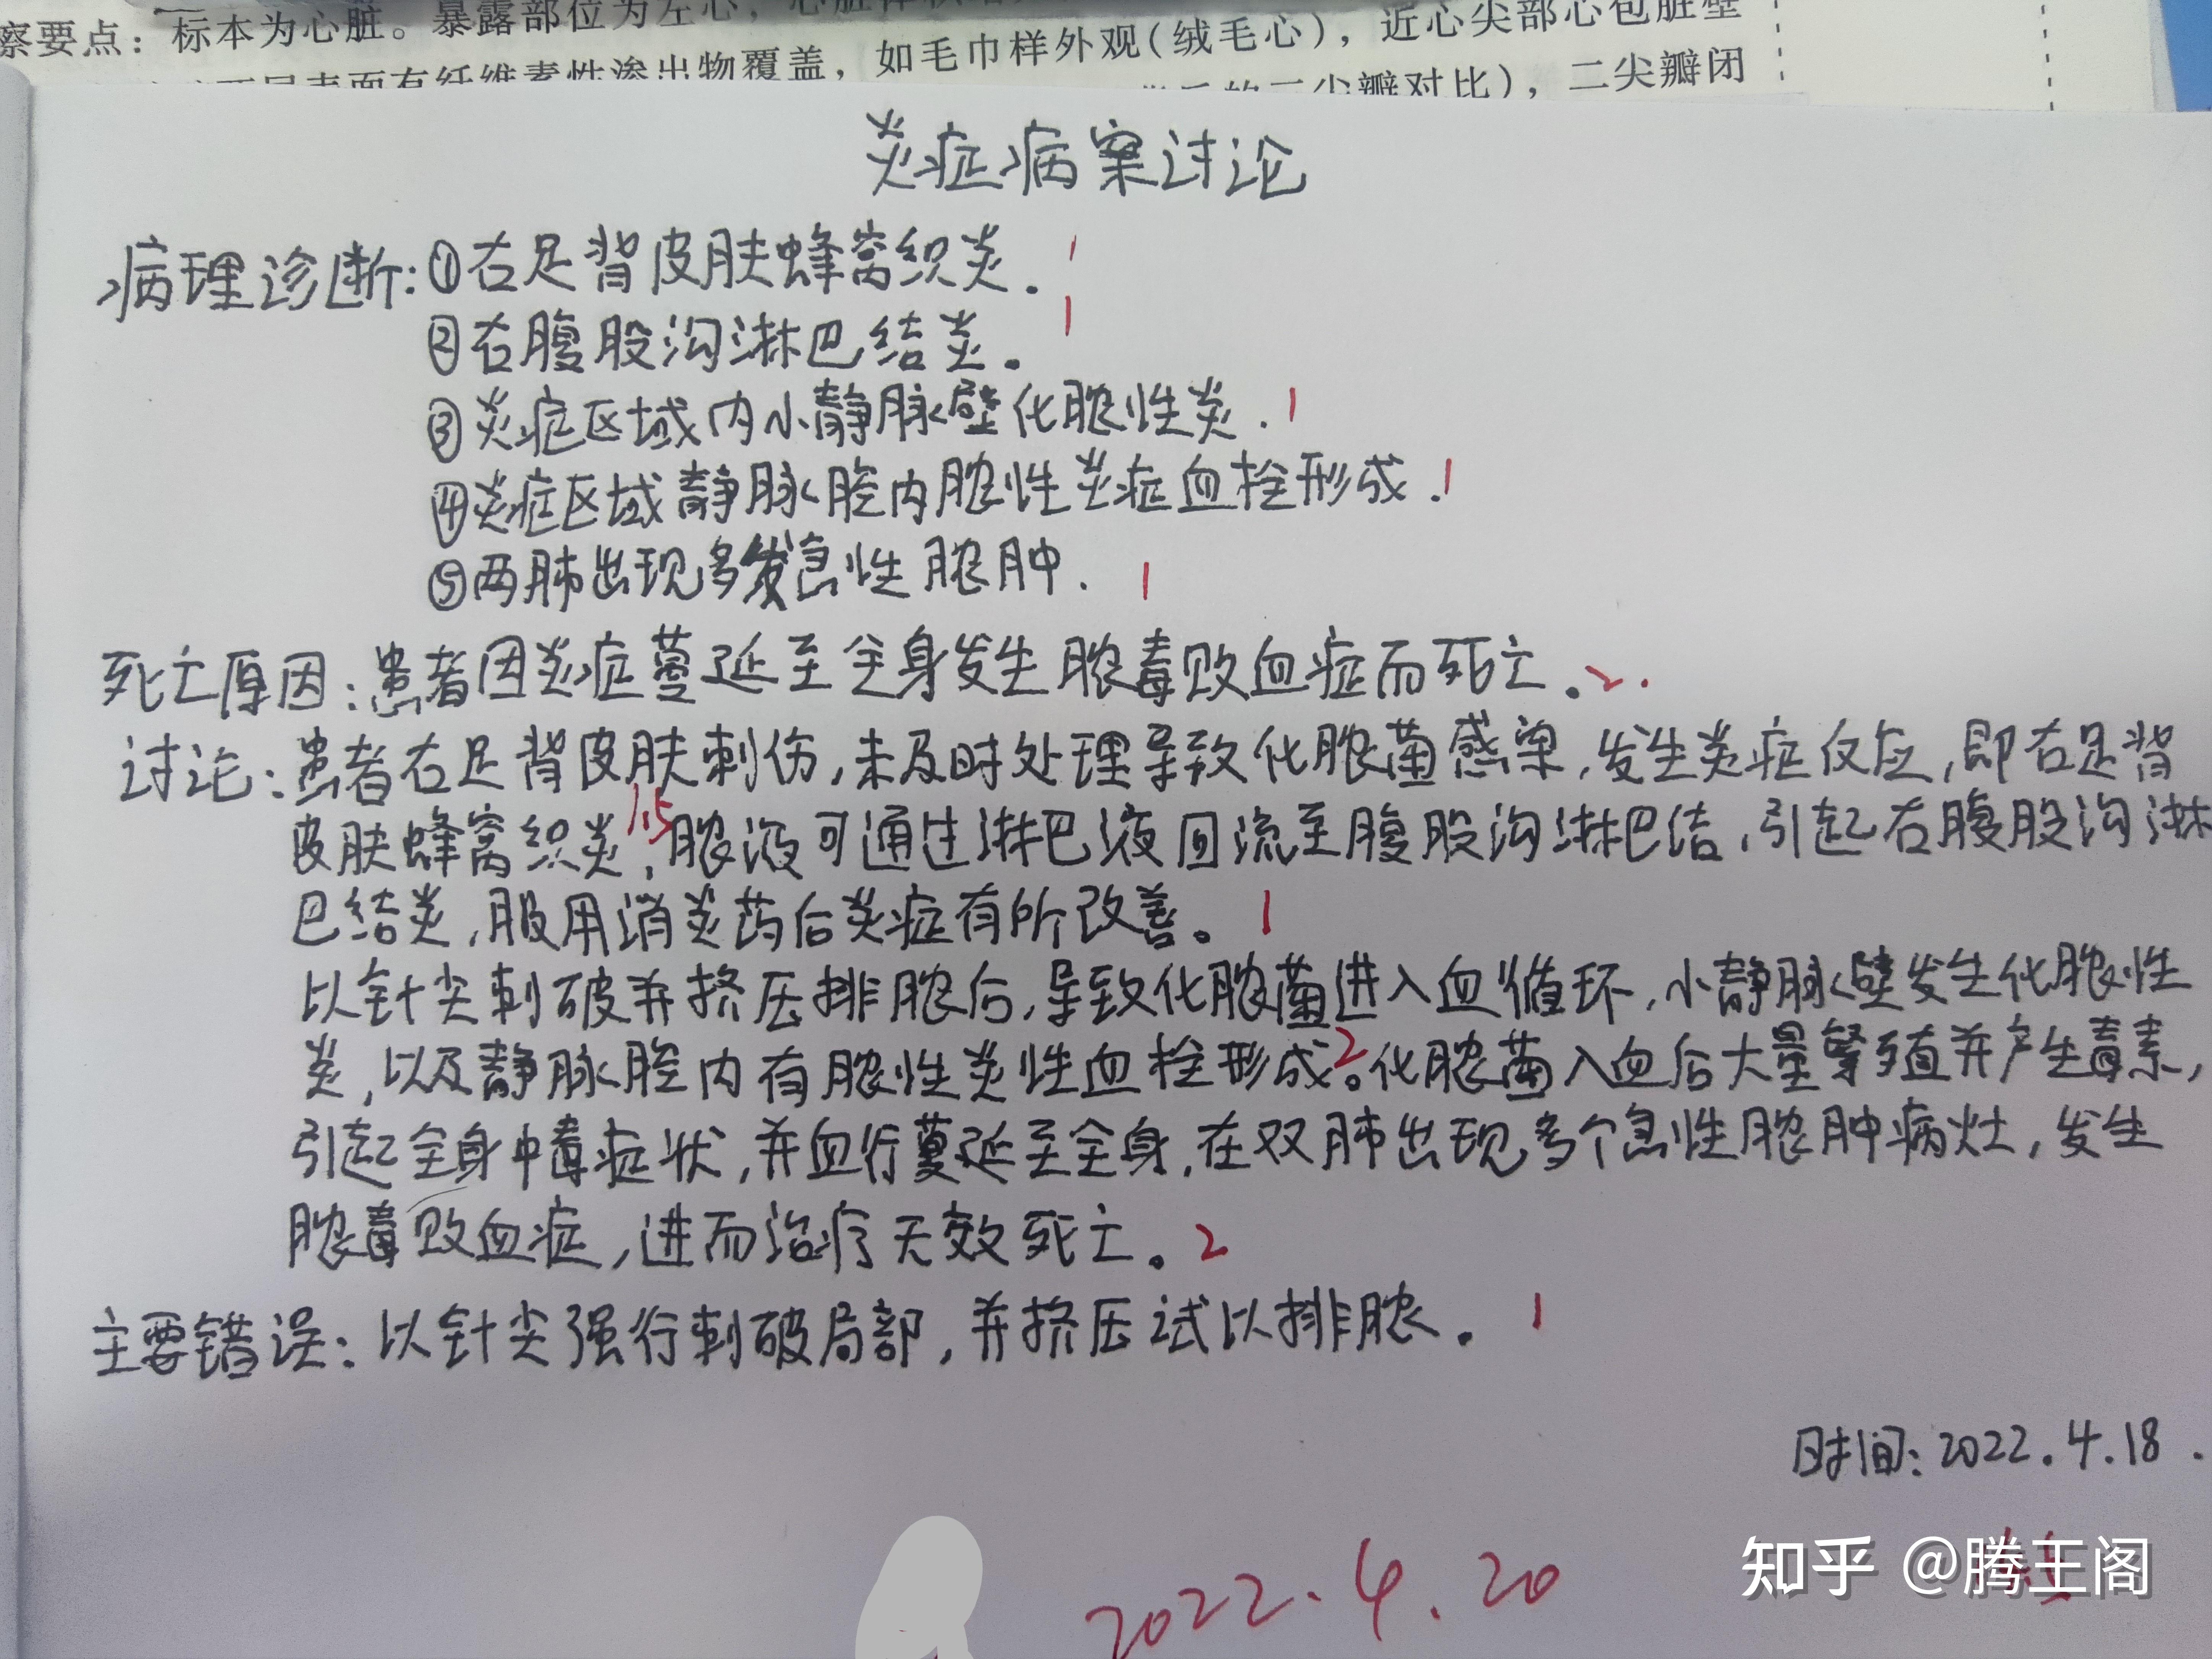 察要点：标本为心脏。暴露部位为左心，心脏体积
如毛巾样外观(绒毛心)，近心尖部心包脏壁
表面有纤维素性渗出物覆盖，
的二尖瓣对比)，二尖瓣闭
炎症病案讨论
病理诊断:①右足背皮肤蜂窝织炎. 1
②右腹股沟淋巴结炎。 1
③炎症区域内小静脉壁化脓性炎. 1
④炎症区域静脉腔内脓性炎症血栓形成. 1
⑤两肺出现多发急性脓肿. 1
死亡原因:患者因炎症蔓延至全身发生脓毒败血症而死亡。2.
讨论:患者右足背皮肤刺伤,未及时处理导致化脓菌感染,发生炎症反应,即右足背
皮肤蜂窝织炎,1.5脓液可通过淋巴液回流至腹股沟淋巴结,引起右腹股沟淋
巴结炎,服用消炎药后炎症有所改善。 1
以针尖刺破并挤压排脓后,导致化脓菌进入血循环,小静脉壁发生化脓性
炎,以及静脉腔内有脓性炎性血栓形成。2化脓菌入血后大量繁殖并产生毒素,
引起全身中毒症状,并血行蔓延至全身,在双肺出现多个急性脓肿病灶,发生
脓毒败血症,进而治疗无效死亡。2
主要错误:以针尖强行刺破局部,并挤压试以排脓。 1
时间:2022.4.18.
2022.4.20
知乎 @腾王阁